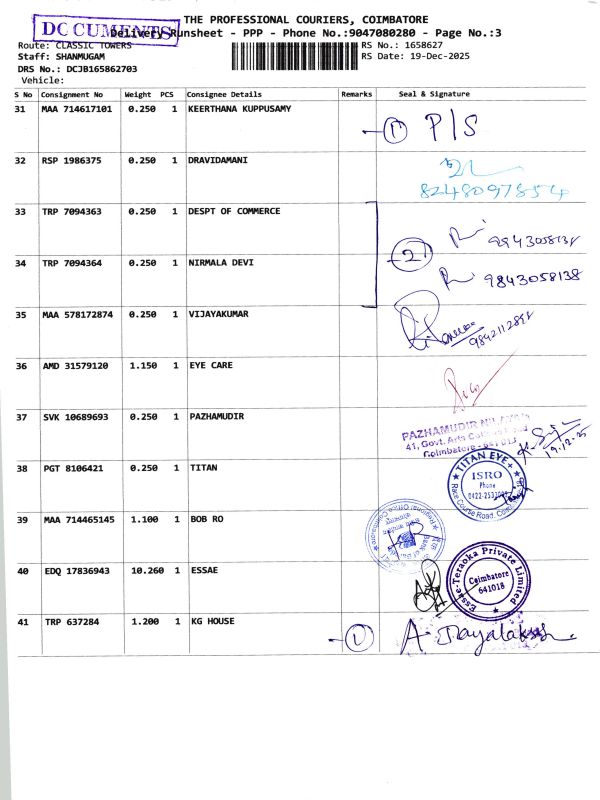 THE PROFESSIONAL COURIERS, COIMBATORE
DOCUMENTS
Delivery Runsheet - PPP - Phone No.:9047080280 - Page No.:3
Route: CLASSIC TOWERS RS No.: 1658627
Staff: SHANMUGAM RS Date: 19-Dec-2025
DRS No.: DCJB165862703
Vehicle:
S No Consignment No Weight PCS Consignee Details Remarks Seal & Signature
31 MAA 714617101 0.250 1 KEERTHANA KUPPUSAMY
1 P/S
32 RSP 1986375 0.250 1 DRAVIDAMANI
8248097854
33 TRP 7094363 0.250 1 DESPT OF COMMERCE
9943058138
2
34 TRP 7094364 0.250 1 NIRMALA DEVI
9843058138
35 MAA 578172874 0.250 1 VIJAYAKUMAR
36 AMD 31579120 1.150 1 EYE CARE
37 SVK 10689693 0.250 1 PAZHAMUDIR
PAZHAMUDIR NILAYAM
41, Govt. Arts College Road
Coimbatore - 641 018
19.12.25
38 PGT 8106421 0.250 1 TITAN
TITAN EYE+
ISRO
Phone
Race Course Road,
39 MAA 714465145 1.100 1 BOB RO
Regional Office Coimbatore
40 EDQ 17836943 10.260 1 ESSAE
Essae-Teraoka Private Limited
Coimbatore
641018
41 TRP 637284 1.200 1 KG HOUSE
1